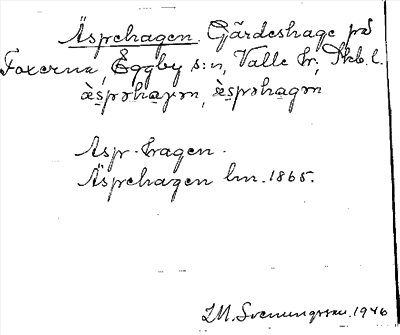 Äspehagen. Gärdeshage på
Foxerna, Eggby s:n, Valle hr, Skb. l.
Asp-hagen.
Äspehagen lm. 1865.
I.M. Svenungsson. 1946